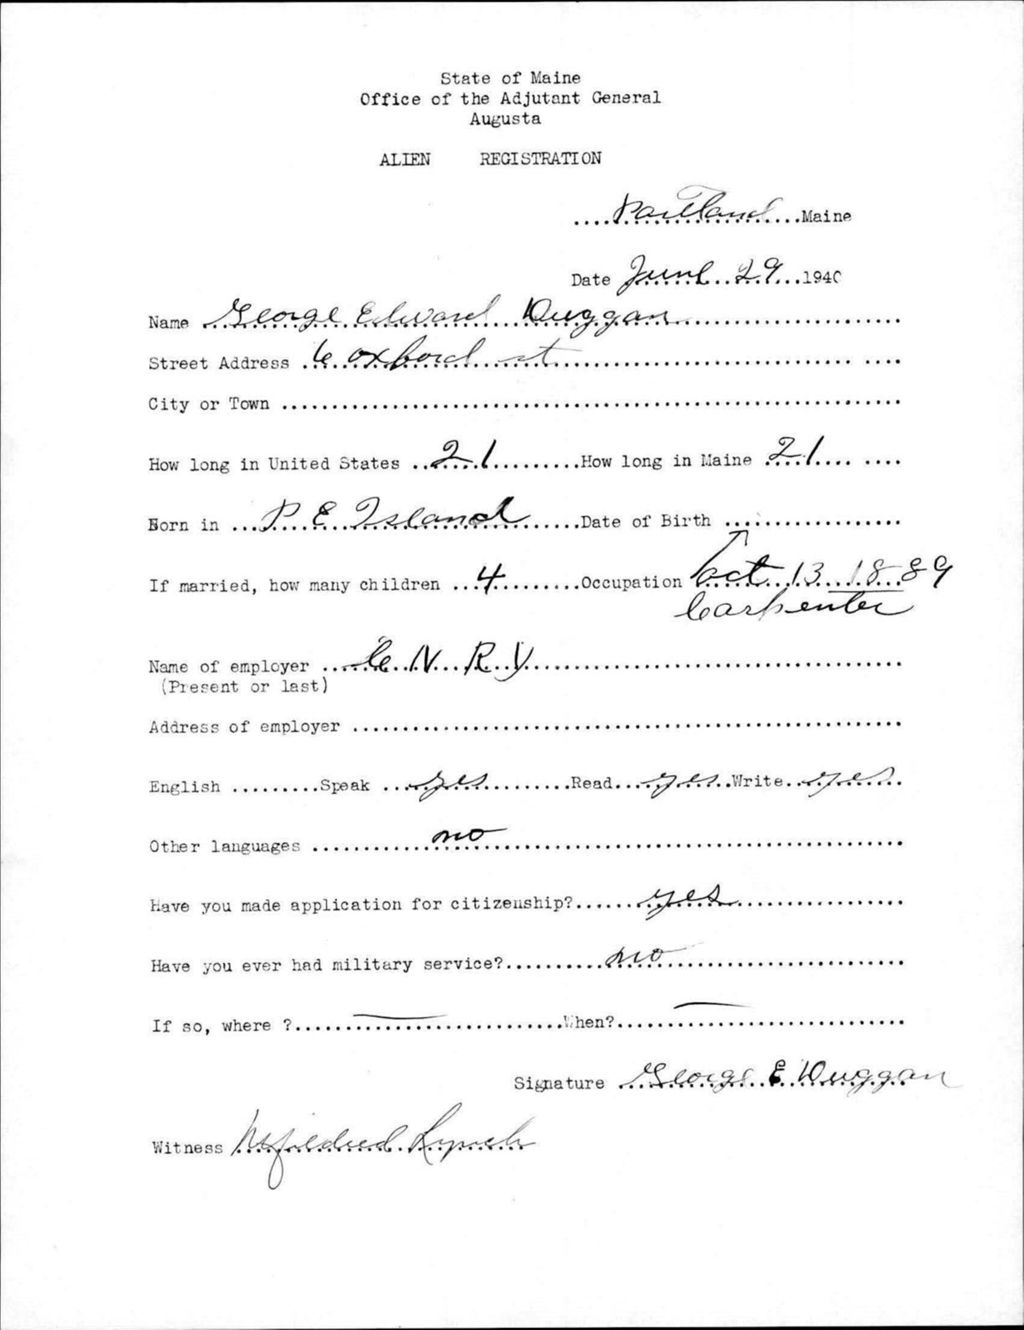 State of Maine
Office of the Adjutant General
Augusta
ALIEN REGISTRATION
....Portland....Maine
Date June 29 1940
Name George Edward Duggan
Street Address 6 oxford st
City or Town
How long in United States 21 How long in Maine 21
Born in P. E. Island Date of Birth
If married, how many children 4 Occupation Oct 13 1889
Carpenter
Name of employer C. N. R. Y
(Present or last)
Address of employer
English Speak yes Read yes Write yes
Other languages no
Have you made application for citizenship? yes
Have you ever had military service? no
If so, where ? — When? —
Signature George E Duggan
Witness Mildred Lynch